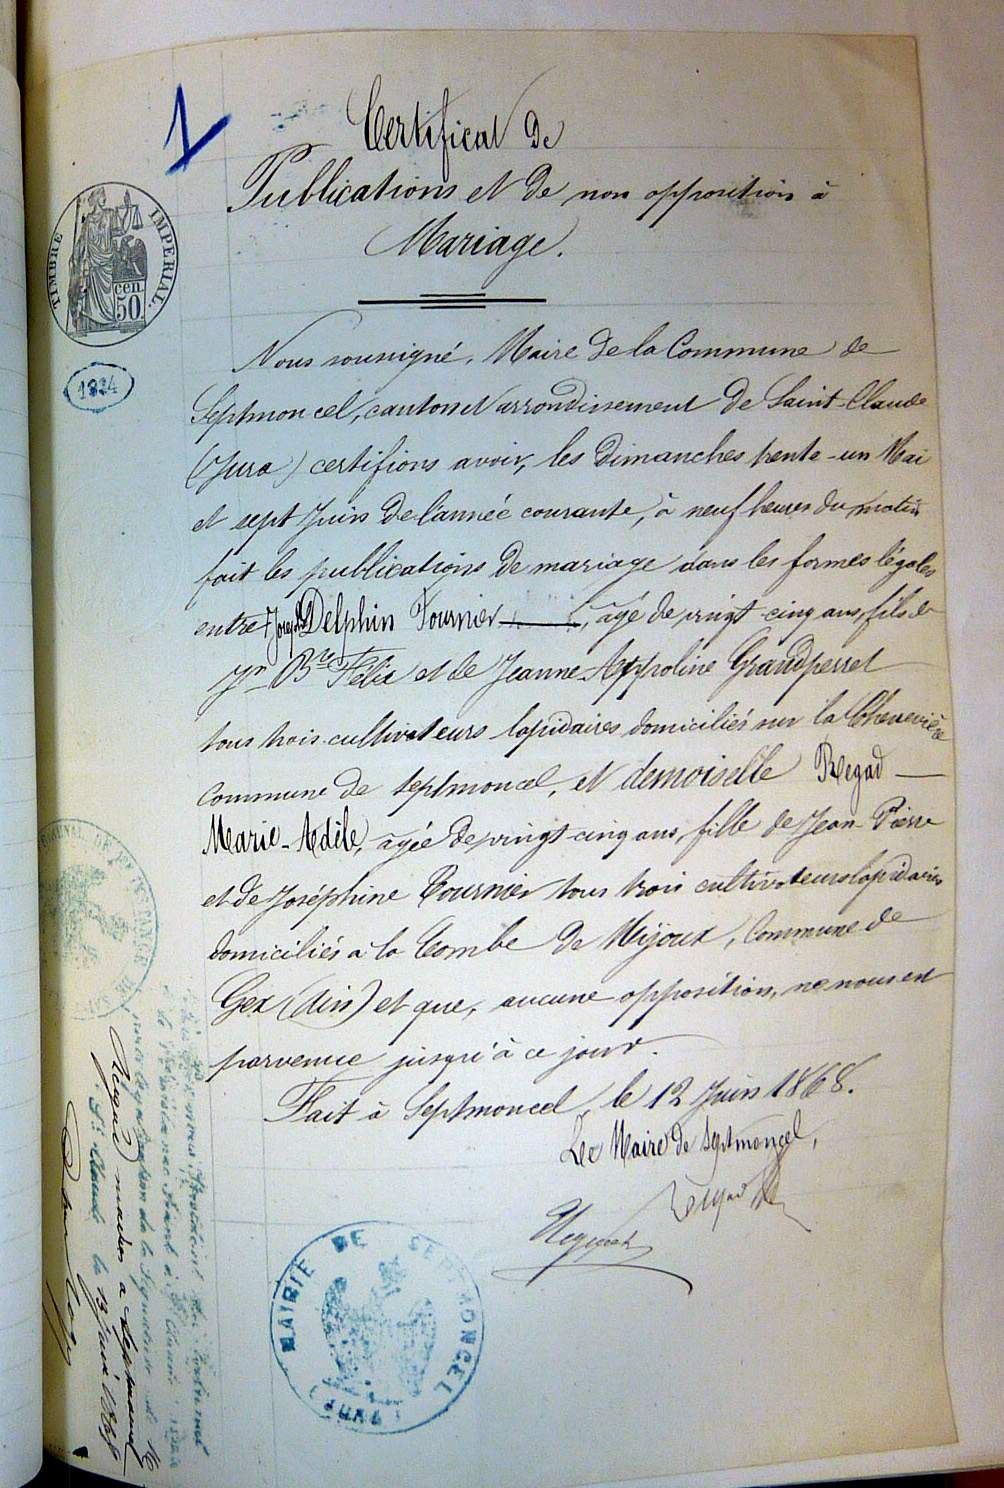 1
Certificat de
Publications et de non opposition à
Mariage.
TIMBRE IMPERIAL.
50 cen.
1824
Nous soussigné, Maire de la Commune de
Septmoncel, canton et arrondissement de Saint-Claude
(Jura) certifions avoir, les Dimanches trente-un Mai
et sept Juin de l'année courante, à neuf heures du matin
fait les publications de mariage dans les formes légales
entre Joseph Delphin Tournier, âgé de vingt-cinq ans, fils de
Jn Bte Félix et de Jeanne-Appoline Grandperret
tous trois cultivateurs lapidaires domiciliés sur la
commune de Septmoncel, et demoiselle Regad
Marie-Adèle, âgée de vingt-cinq ans, fille de Jean-Pierre
et de Joséphine Tournier tous trois cultivateurs lapidaires
domiciliés à la Combe de Mijoux, Commune de
Gex (Ain) et que, aucune opposition, ne nous est
parvenue jusqu'à ce jour.
Fait à Septmoncel, le 12 Juin 1868.
Le Maire de Septmoncel,
Regad
MAIRIE DE SEPTMONCEL
(JURA)
TRIBUNAL DE
de la Signature de M
Regad maire à Septmoncel
St Claude le 13 juin 1868